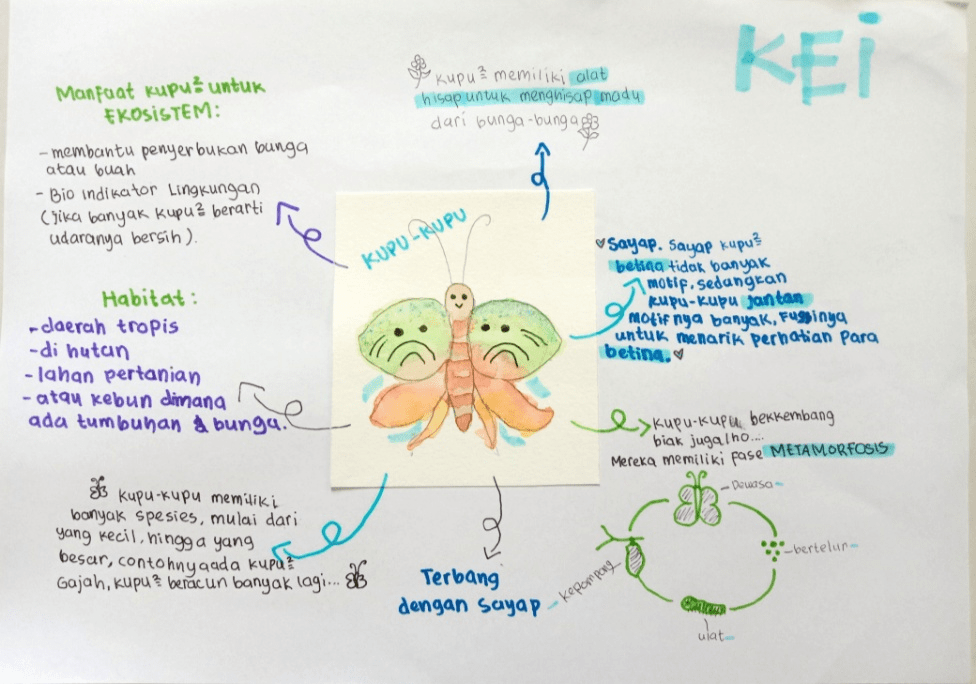 KEi
Manfaat kupu² untuk
EKOSISTEM:
- membantu penyerbukan bunga
atau buah
- Bio indikator Lingkungan
(Jika banyak kupu² berarti
udaranya bersih).
kupu² memiliki alat
hisap untuk menghisap madu
dari bunga-bunga
KUPU-KUPU
Sayap. Sayap kupu²
betina tidak banyak
motif, sedangkan
kupu-kupu jantan
motifnya banyak,
untuk menarik perhatian Para
betina.
Habitat:
- daerah tropis
- di hutan
- lahan pertanian
- atau kebun dimana
ada tumbuhan & bunga.
kupu-kupu berkembang
biak juga lho....
Mereka memiliki fase METAMORFOSIS
Dewasa
bertelur
ulat
kepompong
kupu-kupu memiliki
banyak spesies, mulai dari
yang kecil, hingga yang
besar, contohnya ada kupu²
Gajah, kupu² beracun banyak lagi...
Terbang
dengan sayap